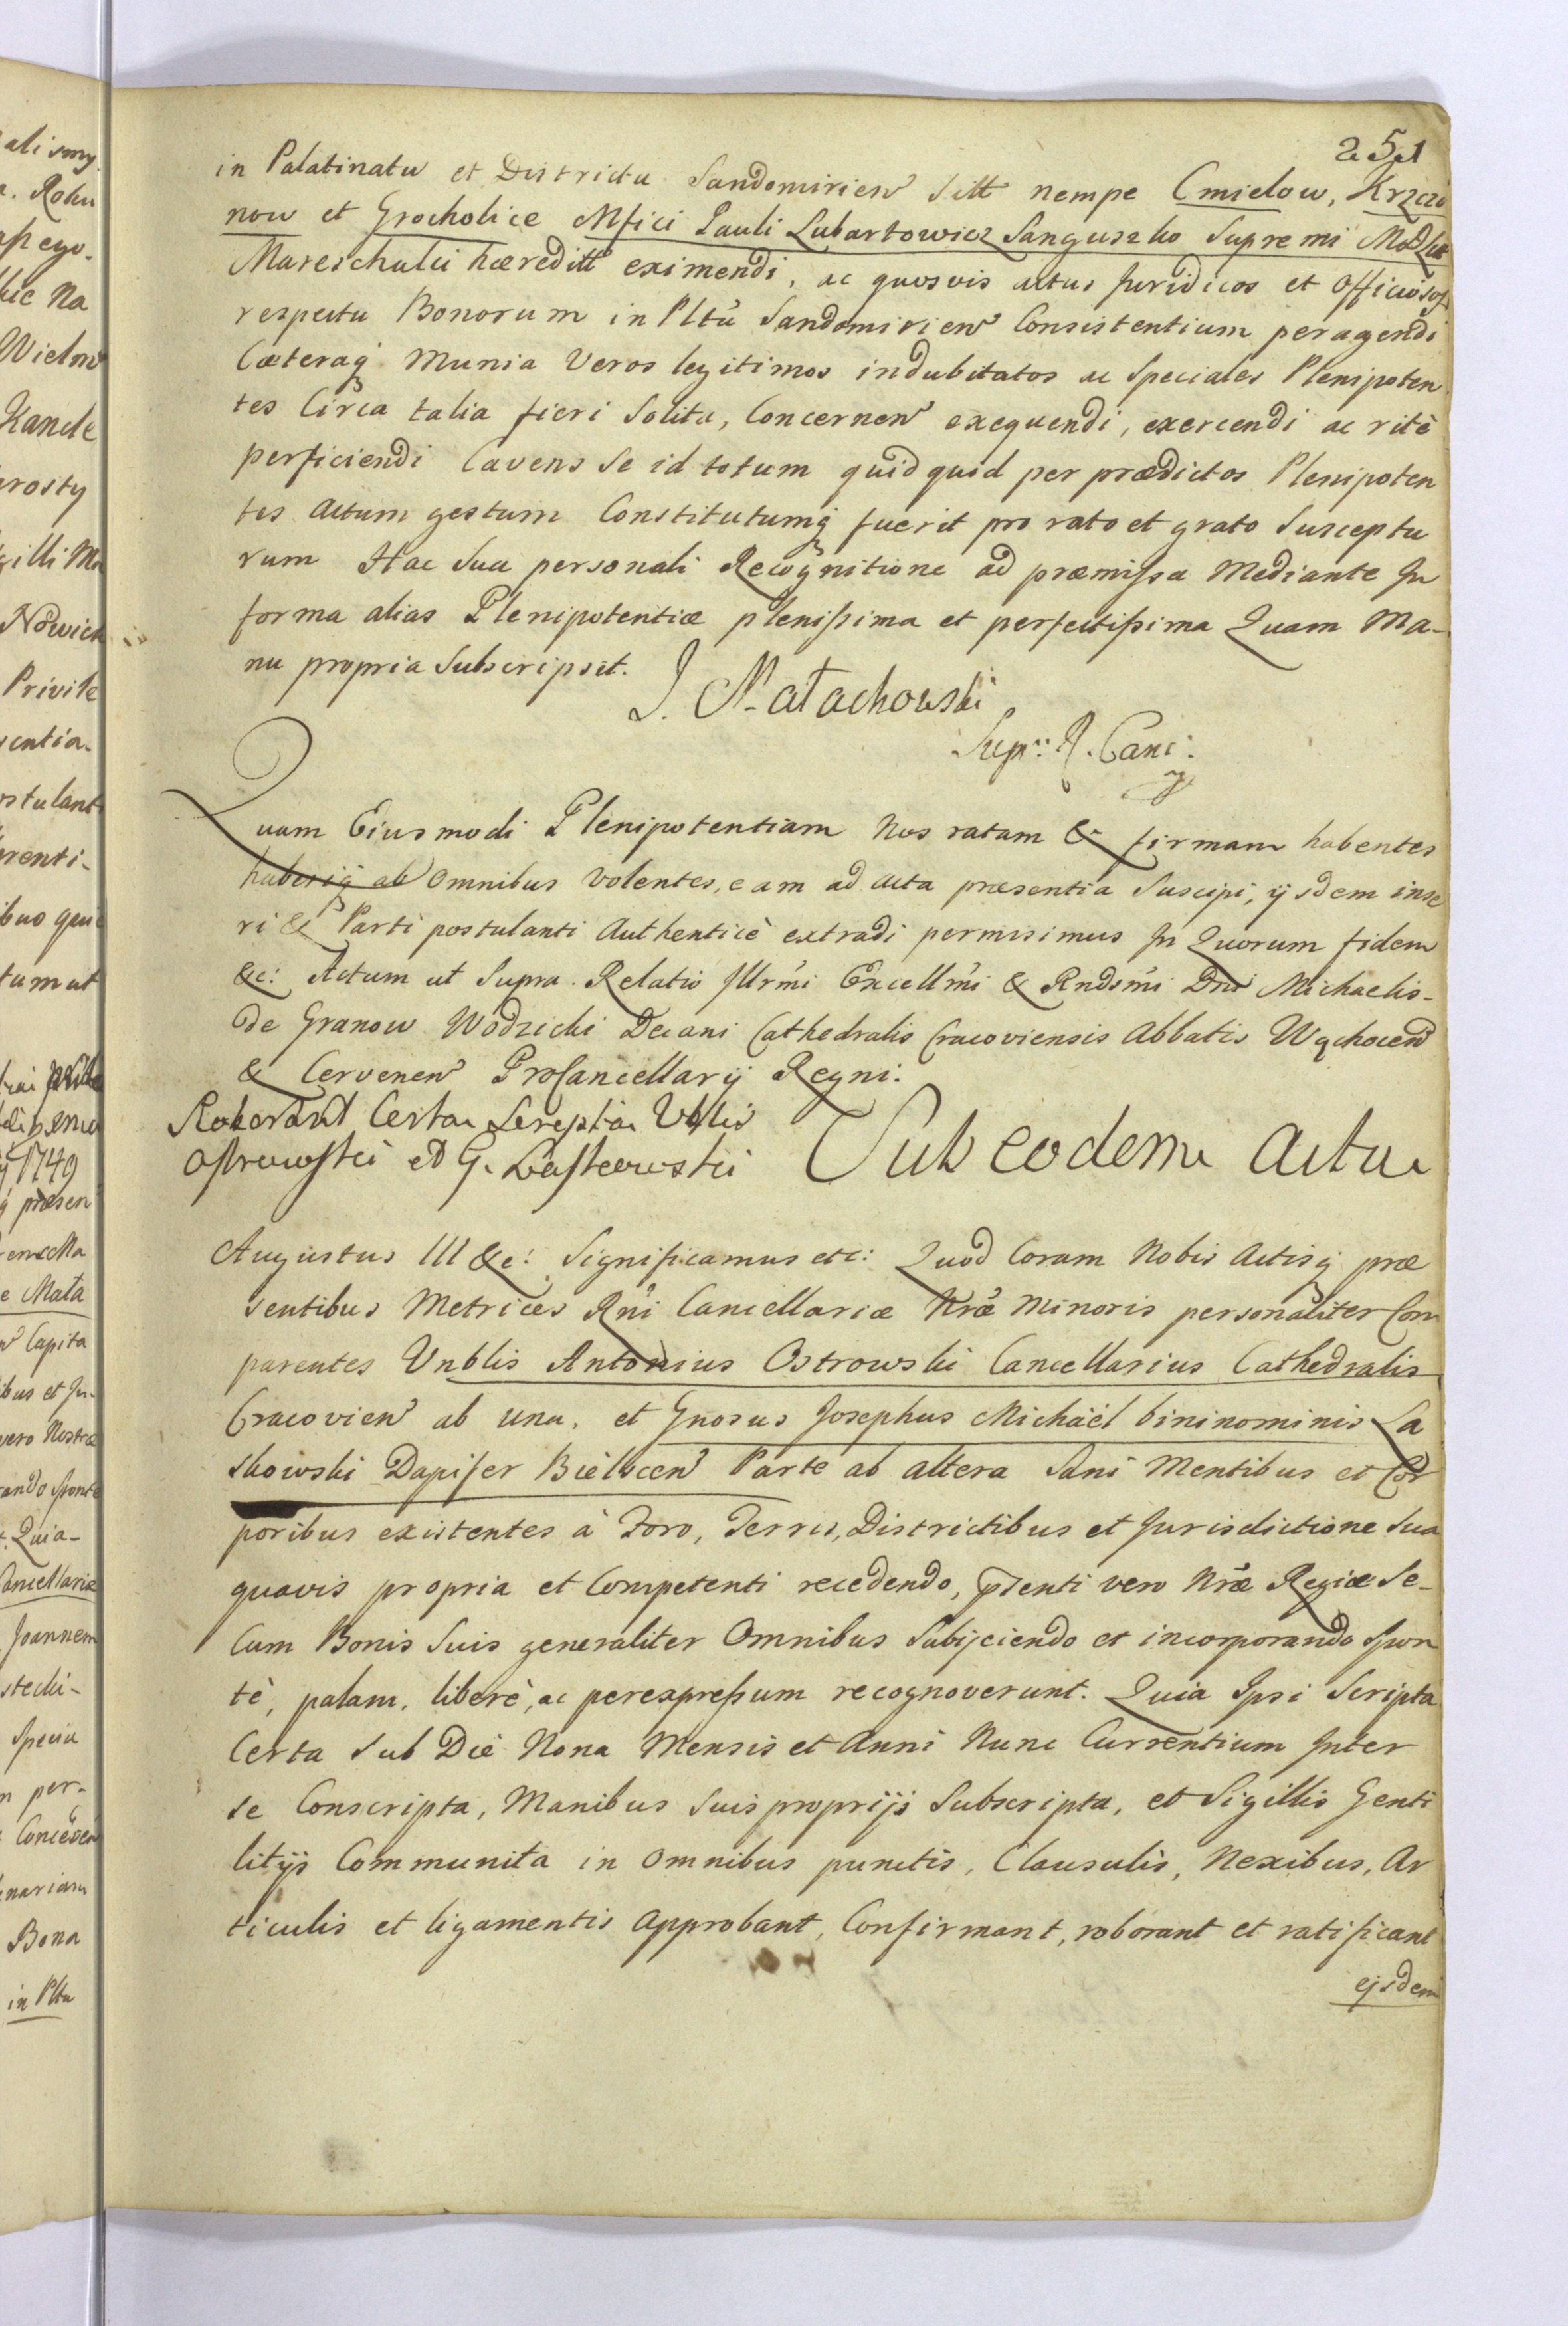 251
in Palatinatu et Districtu Sandomirien Sitt nempe Cmielow, Krzczo
now et Grocholice Mfici Pauli Lubartowicz Sanguszko Supremi M. D. Litt
Mareschalci hæreditt eximendi, ac quosvis actus Juridicos et Officiosos
respectu Bonorum in Pltu Sandomirien Consistentium peragendi
Cæteraq Munia Veros legitimos indubitatos ac Speciales Plenipoten
tes Circa talia fieri Solita, Concernen exequendi, exercendi ac ritè
perficiendi Cavens Se id totum quidquid per prædictos Plenipoten
tes Actum gestum Constitutumq fuerit pro rato et grato Susceptu
rum Hac Sua personali Recognitione ad præmissa Mediante In
forma alias Plenipotentiæ plenissima et perfectissima Quam Ma-
nu propria Subscripsit.
J. Małachowski
Supr: R. Canc:
Quam Eiusmodi Plenipotentiam Nos ratam & firmam habentes
haberiq ab Omnibus Volentes, eam ad Acta præsentia Suscipi, ijsdem inse
ri & Parti postulanti Authenticè extradi permisimus In Quorum fidem
&c: Actum ut Supra. Relatio Illrmi Excellmi & Rndsmi Dni Michaelis-
de Granow Wodzicki Decani Cathedralis Cracoviensis Abbatis Wąchocen
& Cervenen ProCancellarij Regni.
Roborant Certa Scripta Vblis
Ostrowski et G. Laskowski
Sub eodem Actu
Augustus III &c: Significamus etc: Quod Coram Nobis Actisq præ
sentibus Metrices Rni Cancellariæ Nræ Minoris personaliter Com
parentes Vnblis Antonius Ostrowski Cancellarius Cathedralis
Cracovien ab una, et Gnosus Josephus Michäel bininominis La
skowski Dapifer Bielscen Parte ab altera Sani Mentibus et Cor
poribus existentes à Foro, Terris, Districtibus et Jurisdictione Sua
quavis propria et Competenti recedendo, psenti vero Nræ Regiæ Se-
Cum Bonis Suis generaliter Omnibus Subijciendo et incorporando Spon
tè, palam, liberè, ac perexpressum recognoverunt. Quia Ipsi Scripta
Certa Sub Diè Nona Mensis et Anni Nunc Currentium Inter
Se Conscripta, Manibus Suis proprijs Subscripta, et Sigillis Genti
litijs Communita in Omnibus punctis, Clausulis, Nexibus, Ar
ticulis et ligamentis Approbant, Confirmant, roborant et ratificant
ejsdem